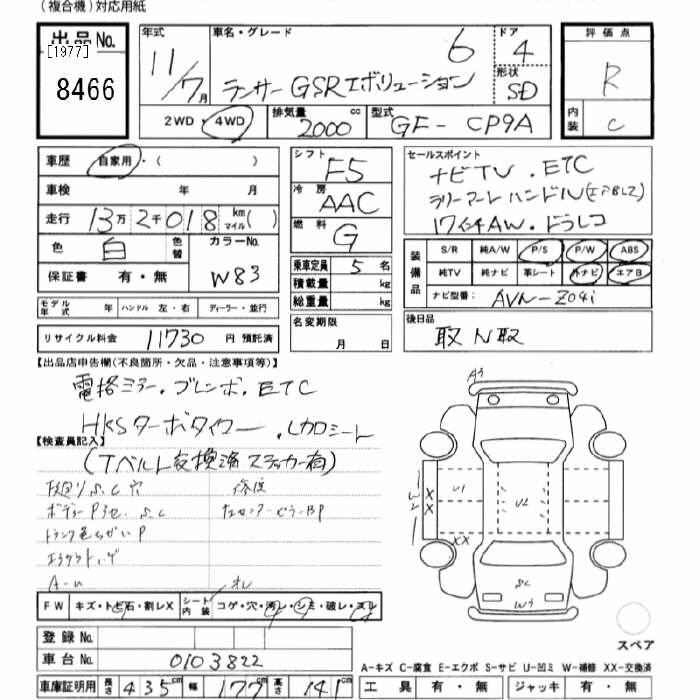 (複合機)対応用紙
出品No. [1977] 8466
年式 11/7月
車名・グレード 6 ランサー GSR エボリューション
ドア 4
形状 SD
評価点 R
内装 C
2WD・4WD
排気量 2000 cc
型式 GF- CP9A
車歴 自家用・( )
車検 年 月
走行 13万2千018 km マイル( )
色 白 色替 カラーNo. W83
保証書 有・無
シフト F5
冷房 AAC
燃料 G
乗車定員 5 名
積載量 kg
総重量 kg
名変期限 月 日
セールスポイント
ナビTV . ETC
17インチAW . ドラレコ
装備品
S/R 純A/W P/S P/W ABS
純TV 純ナビ 革シート 外ナビ エアB
ナビ型番: AVN-Z04i
後日品
取 N 取
モデル年式 年 ハンドル 左・右 ディーラー・並行
リサイクル料金 11730 円 預託済
【出品店申告欄(不良箇所・欠品・注意事項等)】
電格ミラー . ブレンボ . ETC
HKSターボタイマー . レカロシート
【検査員記入】
(Tベルト交換済ステッカー有)
A3
W3
X X
U1
U2
XX
SC
W3
スペア
FW キズ・トビ石・割レX
シート内装 コゲ・穴・汚レ・シミ・破レ・スレ
登録No.
車台No. 0103822
車庫証明用 長さ 435cm 幅 177cm 高さ 141cm
A-キズ C-腐食 E-エクボ S-サビ U-凹ミ W-補修 XX-交換済
工具 有・無 ジャッキ 有・無